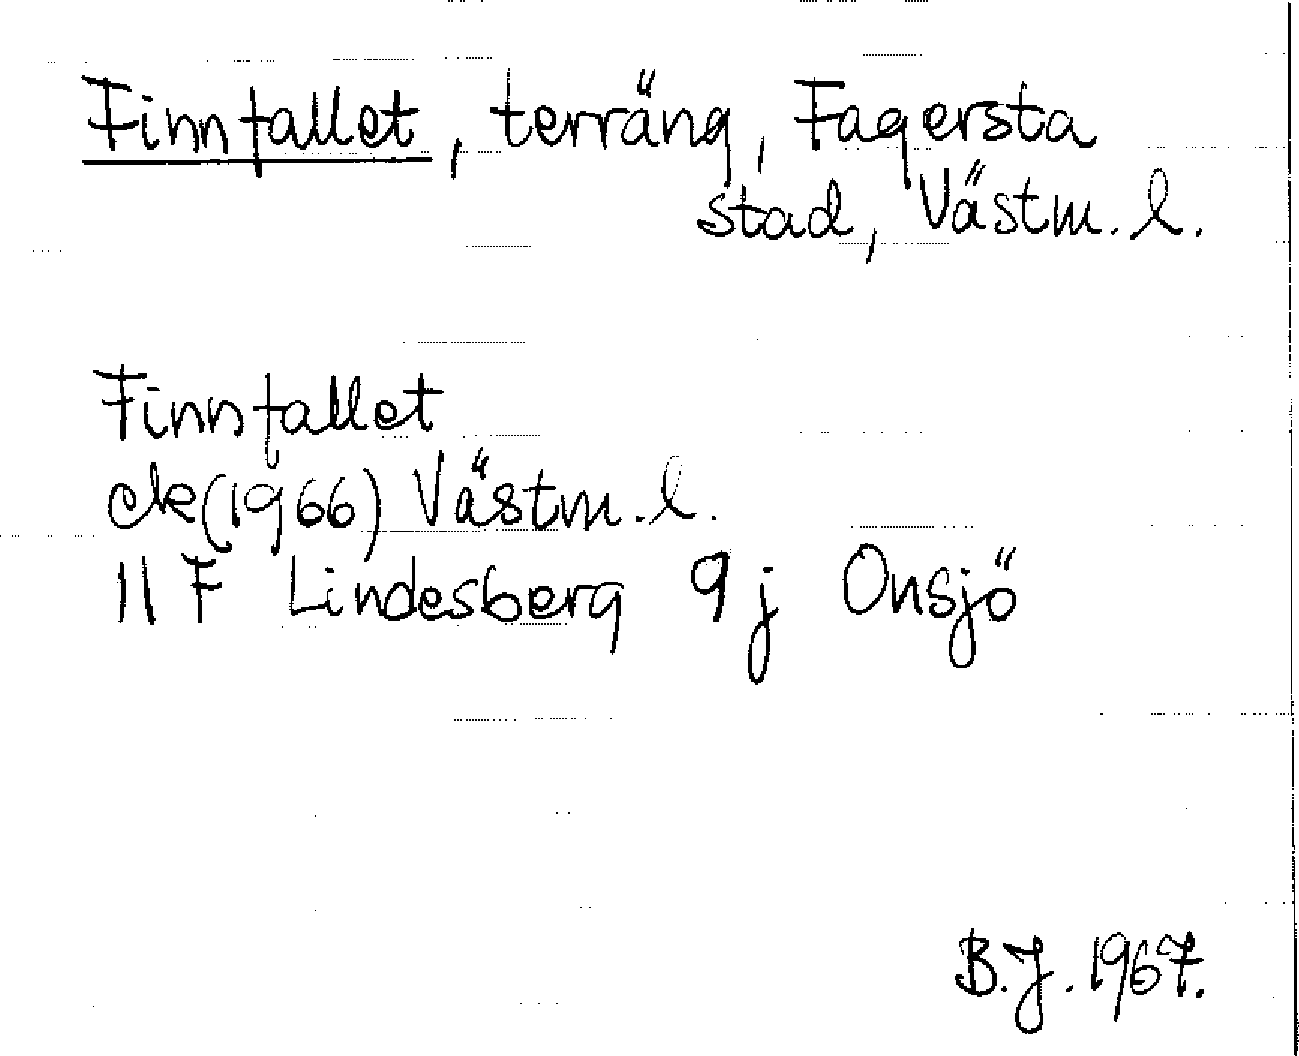 Finnfallet, terräng, Fagersta
stad, Västm. l.
Finnfallet
ek(1966) Västm. l.
11 F Lindesberg 9 j Onsjö
B.J. 1967.